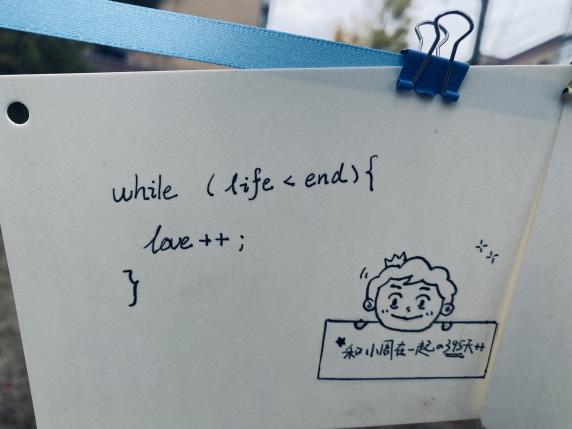 while (life < end){
love ++ ;
}
★和小周在一起の395天++